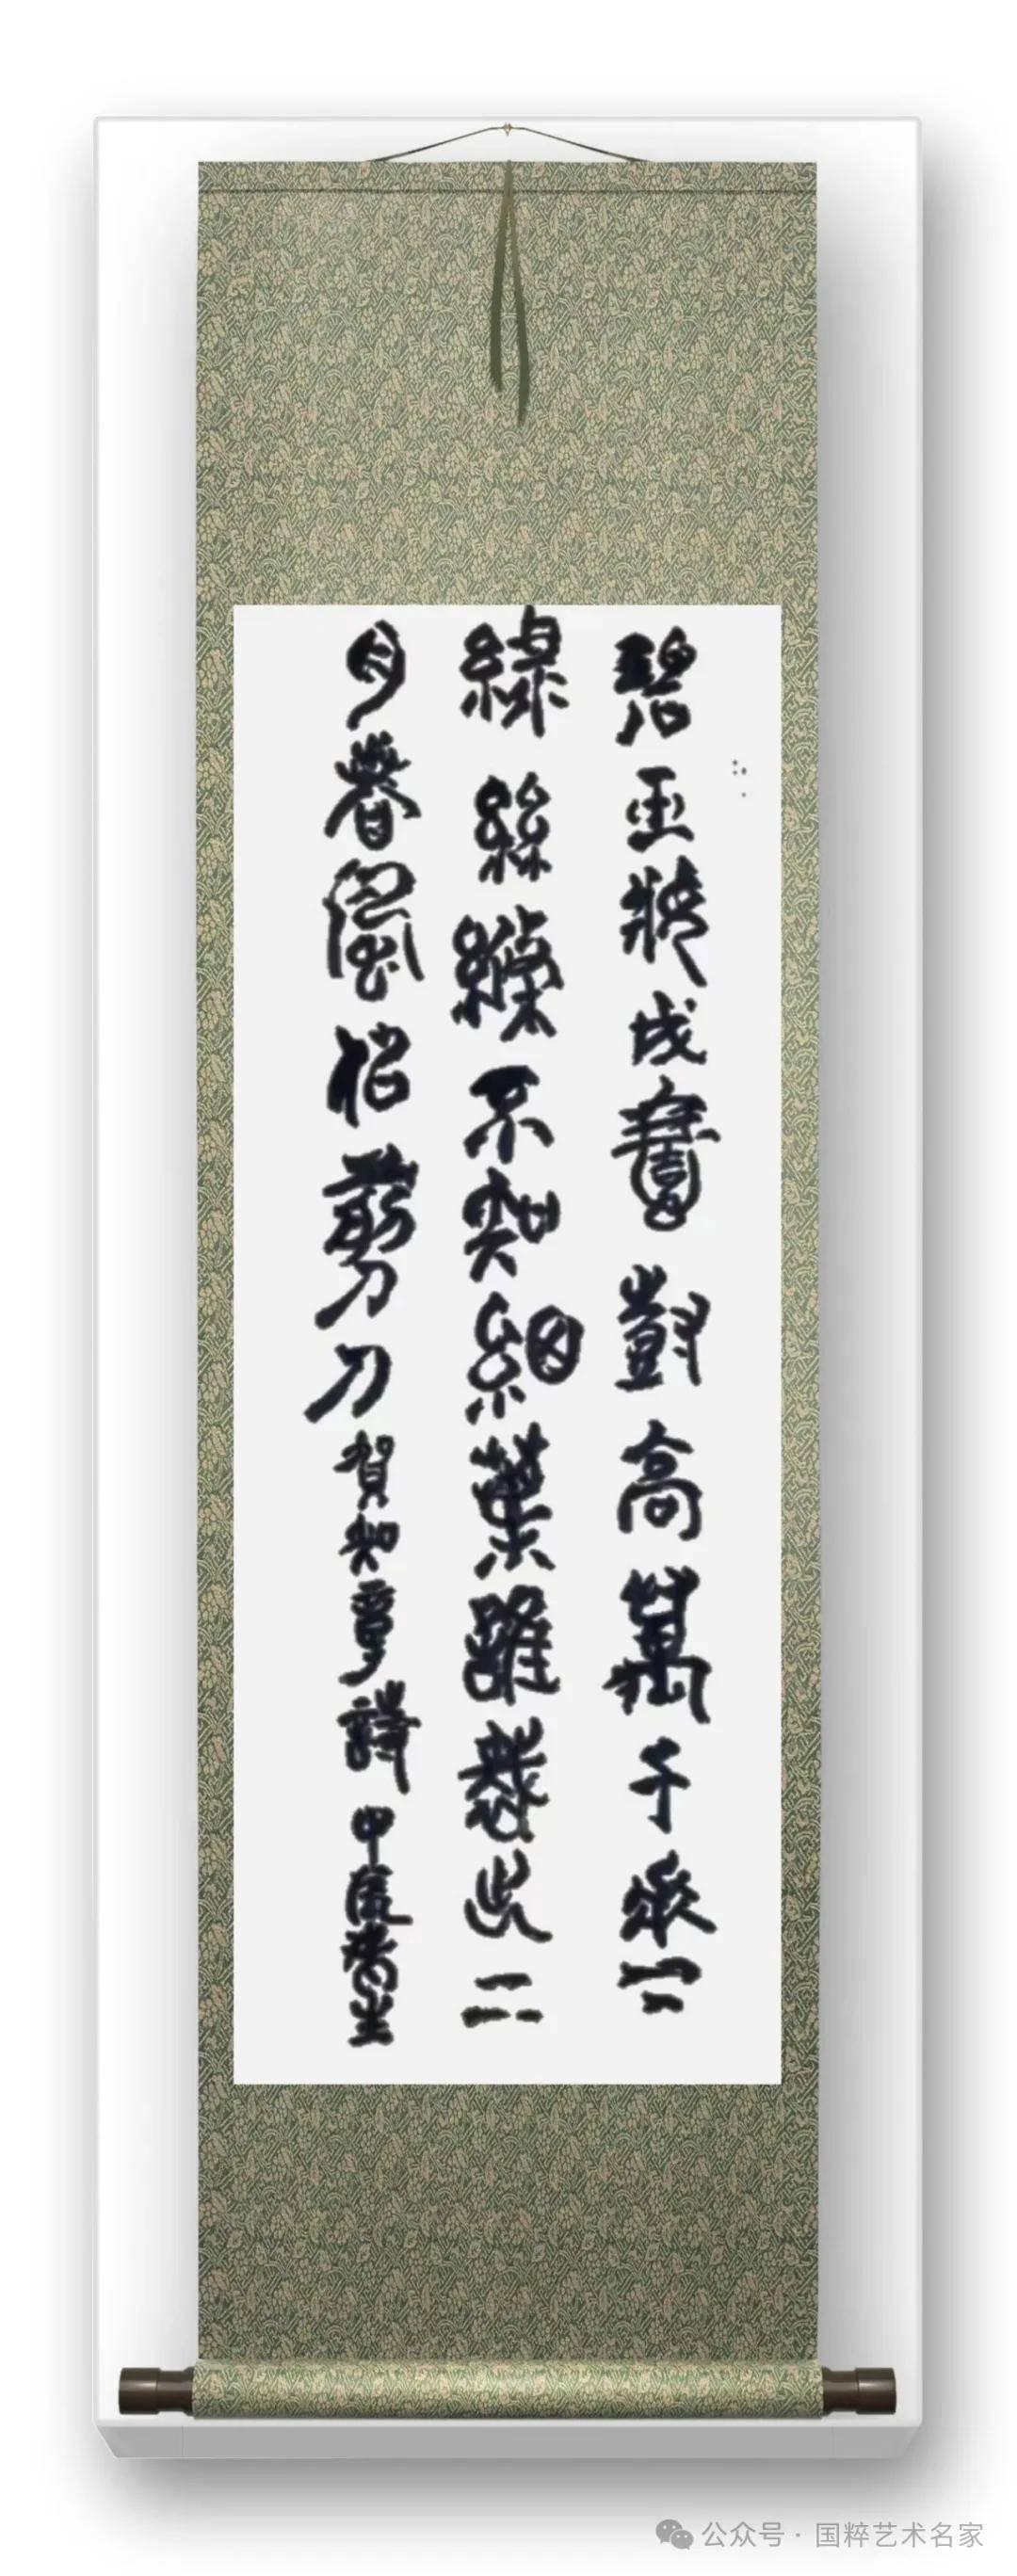 碧玉妝成壹樹高萬千垂下
綠絲縧不知細葉誰裁出二
月春風似剪刀賀知章詩甲辰
公众号 · 国粹艺术名家